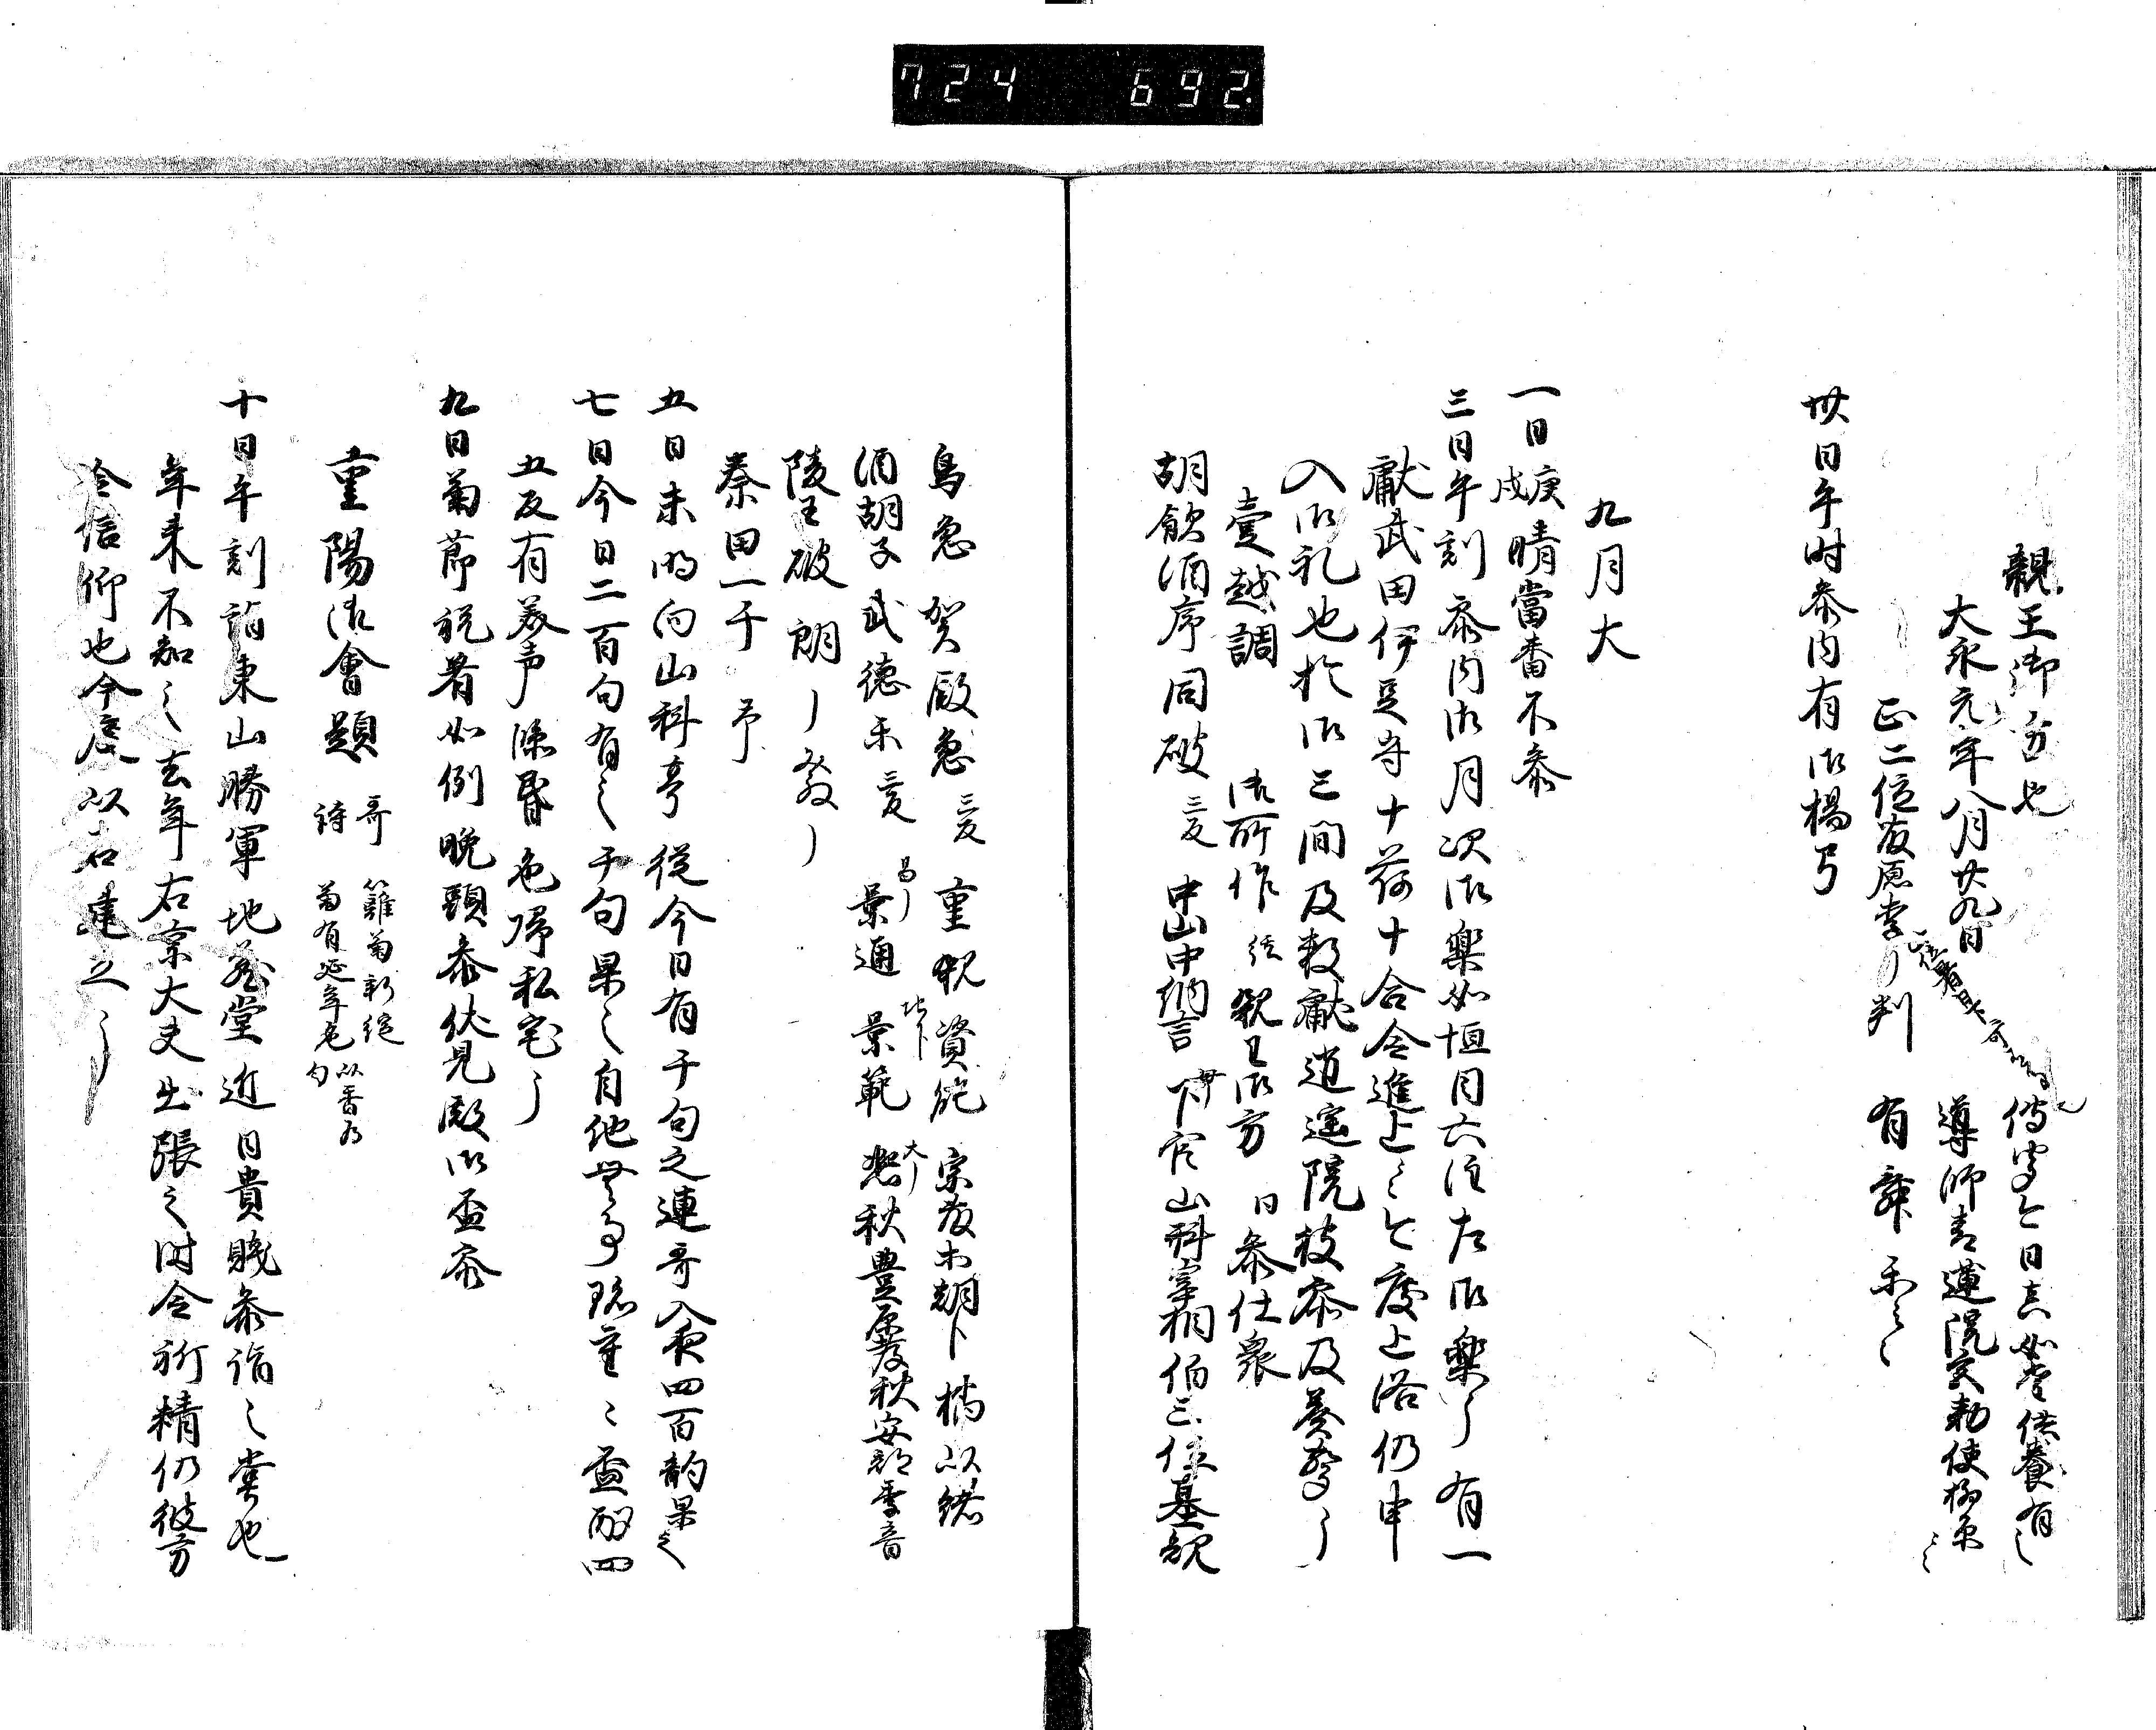 724 692.
親王御方也 傳守今日真如堂供養有之
大永元年八月廿九日 導師青蓮院宮勅使柳原云々
正二位藤原季 判 有舞楽云々
卅日午时参内有御楊弓
九月大
一日庚戌晴當番不参
三日午刻参内御月次御楽如恒月六位尤御楽了有一
献武田伊豆守十荷十合令進上之今度上洛仍申
入御礼也於御三間及数献逍遥院被参及暮參了
壹越調 御所作 親王御方 日参仕衆
胡飲酒序同破三反 中山中納言 下官山科宰相伯三位基規
鳥急賀殿急三反 重親資能宗藤朝卜橘以緒
酒胡子武徳楽三反 景通景範 秋豊原廣秋安部季音
陵王破朗
秦田一千予
五日未明向山科亭従今日有千句之連哥入夜四百韵果之
七日今日二百句有之千句果之自他無事珎重々々盃酌四
五反有美声除昏色帰私宅了
九日菊節祝着如例晩頭参伏見殿御盃参
重陽御會題 哥 籬菊新綻
詩 菊有延年色 以香为勾
十日午刻詣東山勝軍地蔵堂近日貴賎参詣之堂也
年来不知之去年右京大夫出張之时令祈精仍彼方
令信仰也今度以石建立